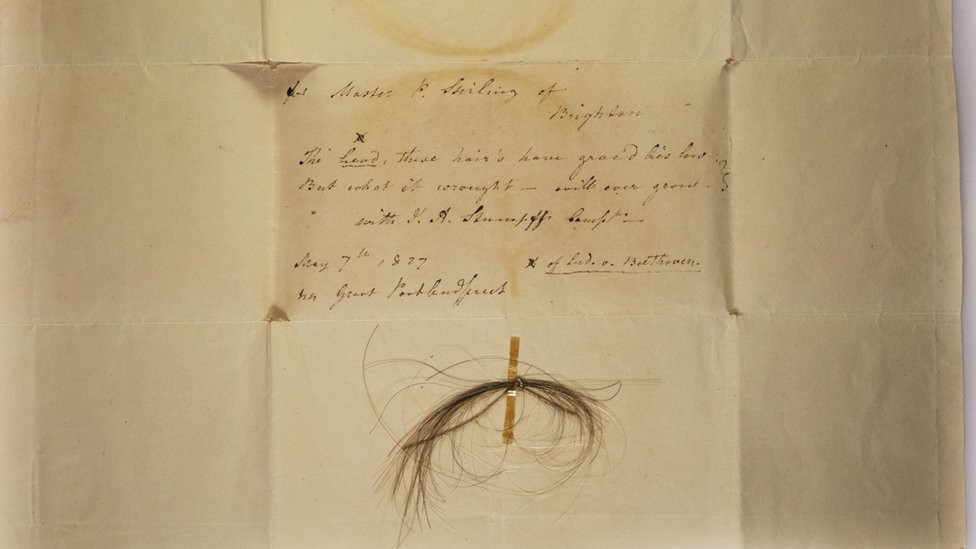 for Master P. Stirling of
Brighton
x
The head, these hair's have grac'd lies low
But what it wrought — will ever grow.
with J. A. Stumpff's Compts
May 7th, 1827
x of Lud. v. Beethoven.
Great Portlandstreet